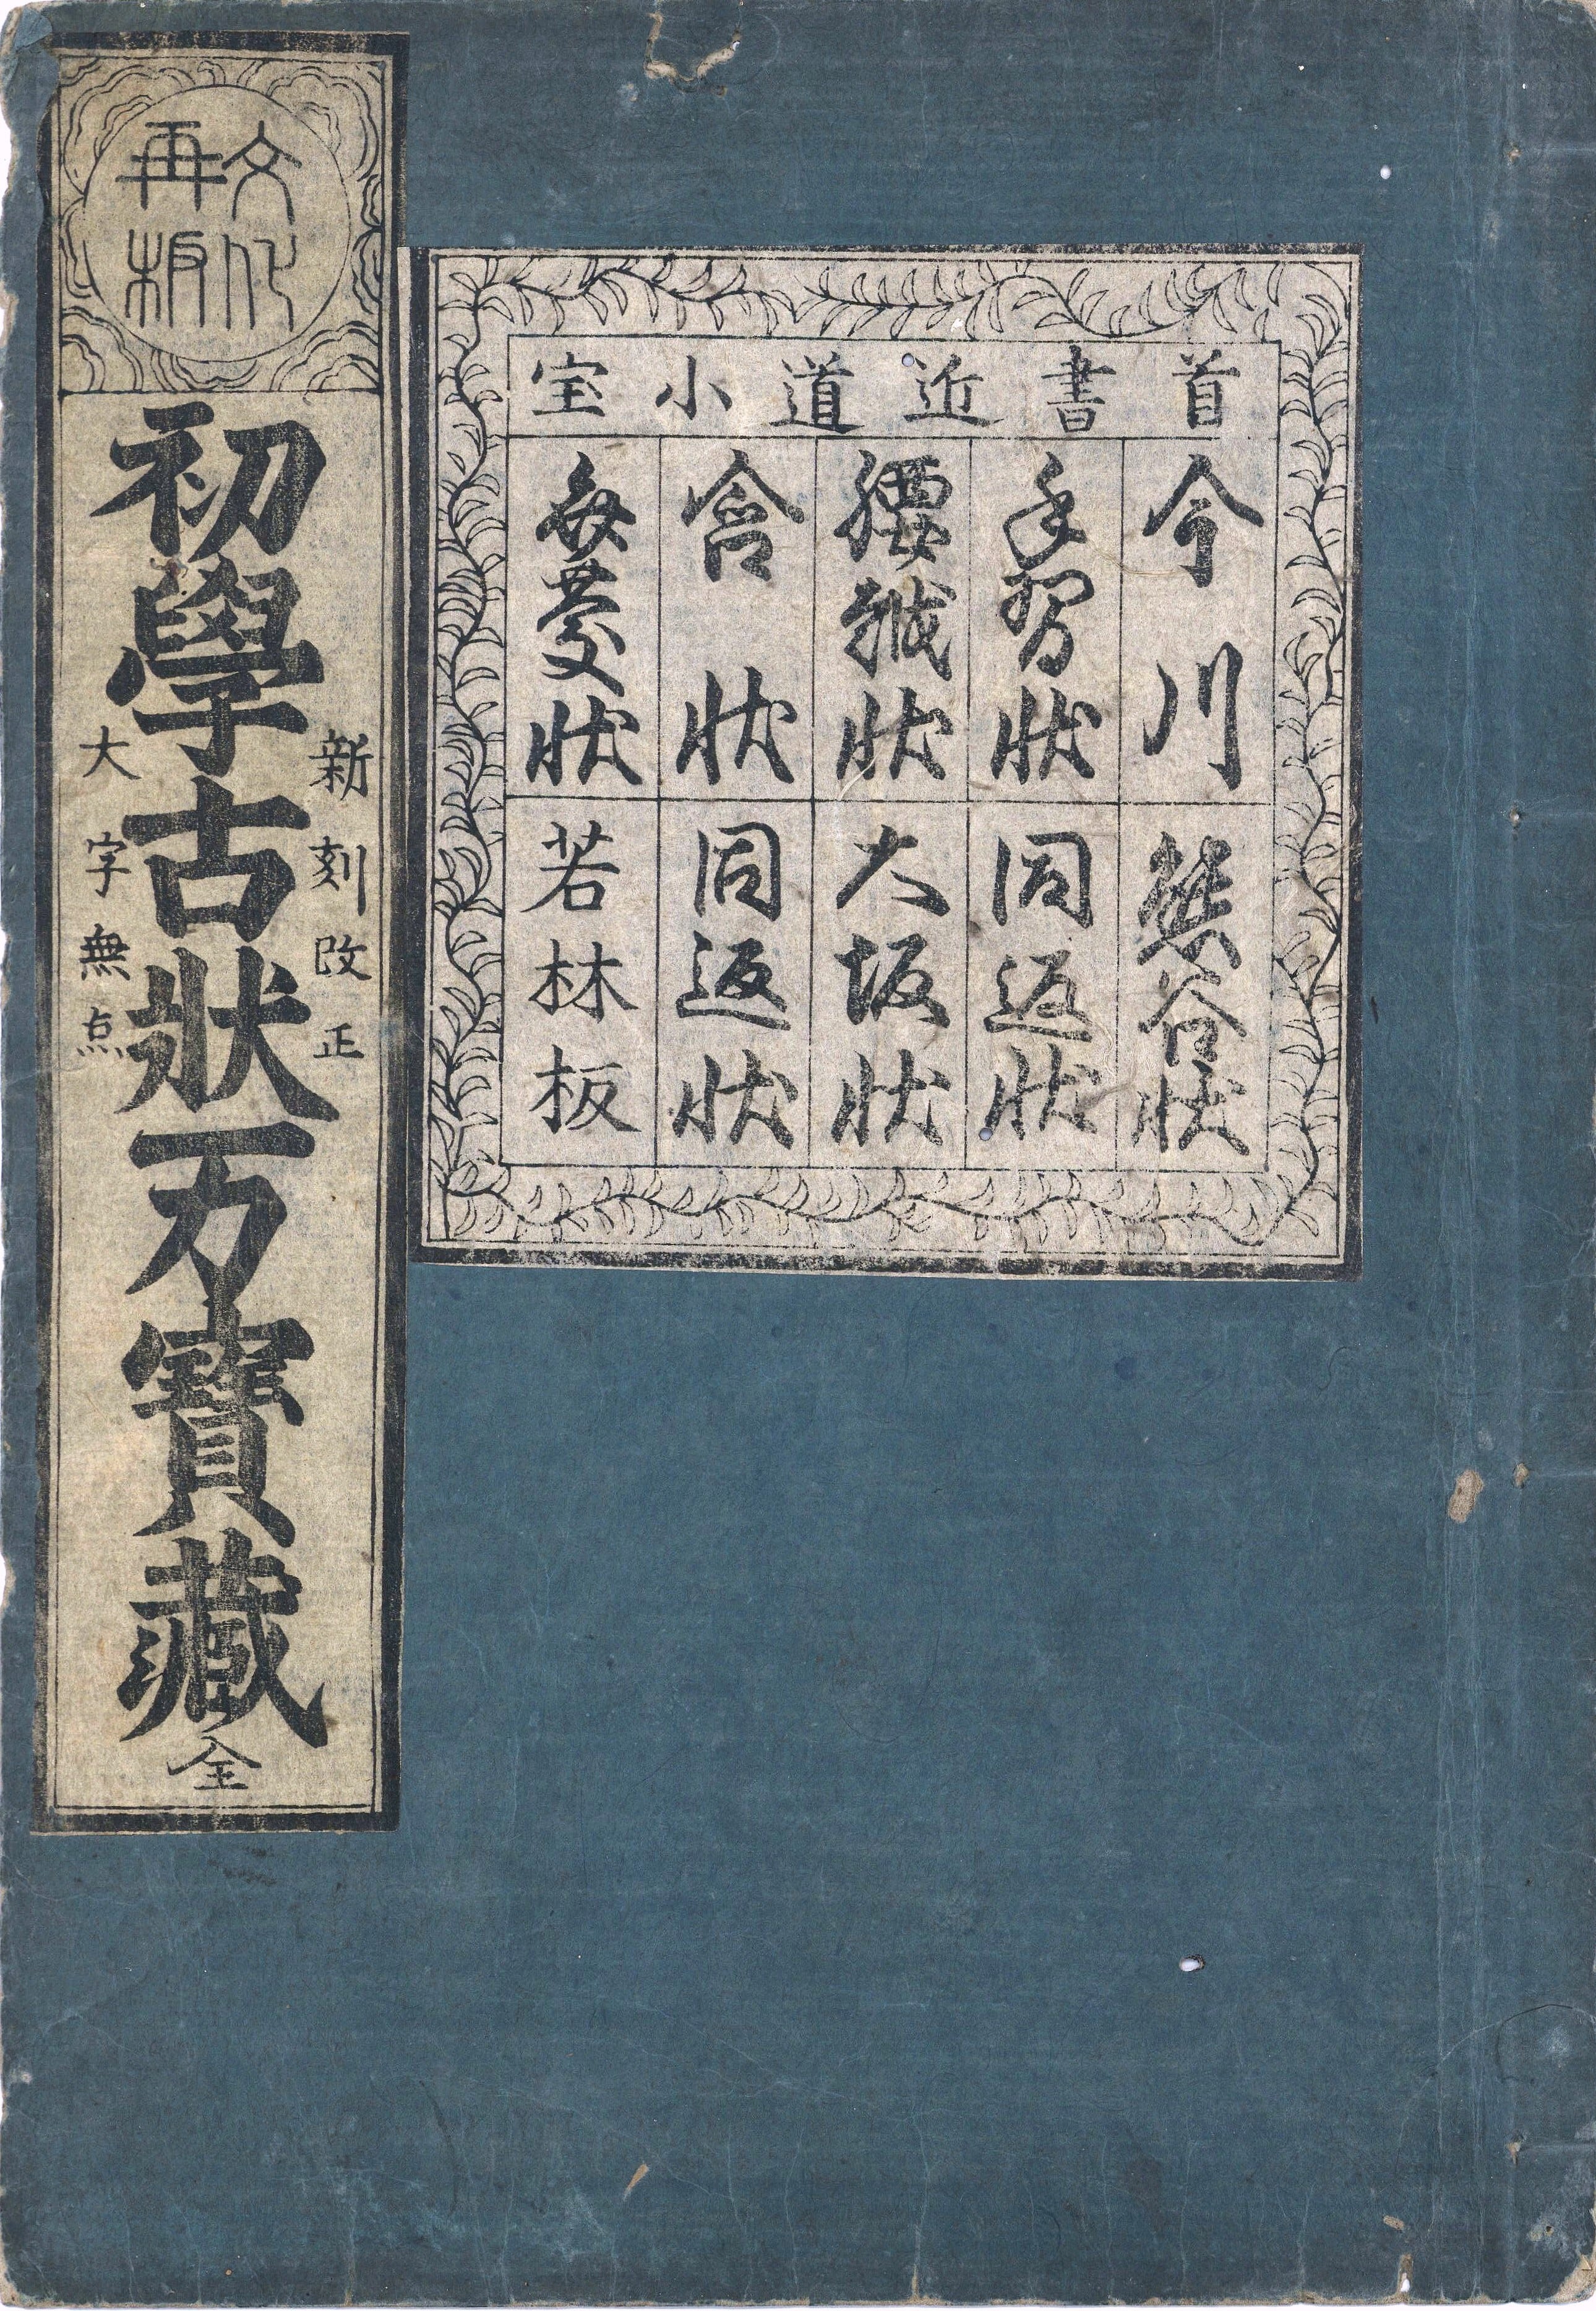 文化
再板
初學古狀万寶藏 全
新刻改正
大字無点
首書近道小宝
今川
手習状
腰越状
含状
弁慶状
熊谷状
同返状
大坂状
同返状
若林板